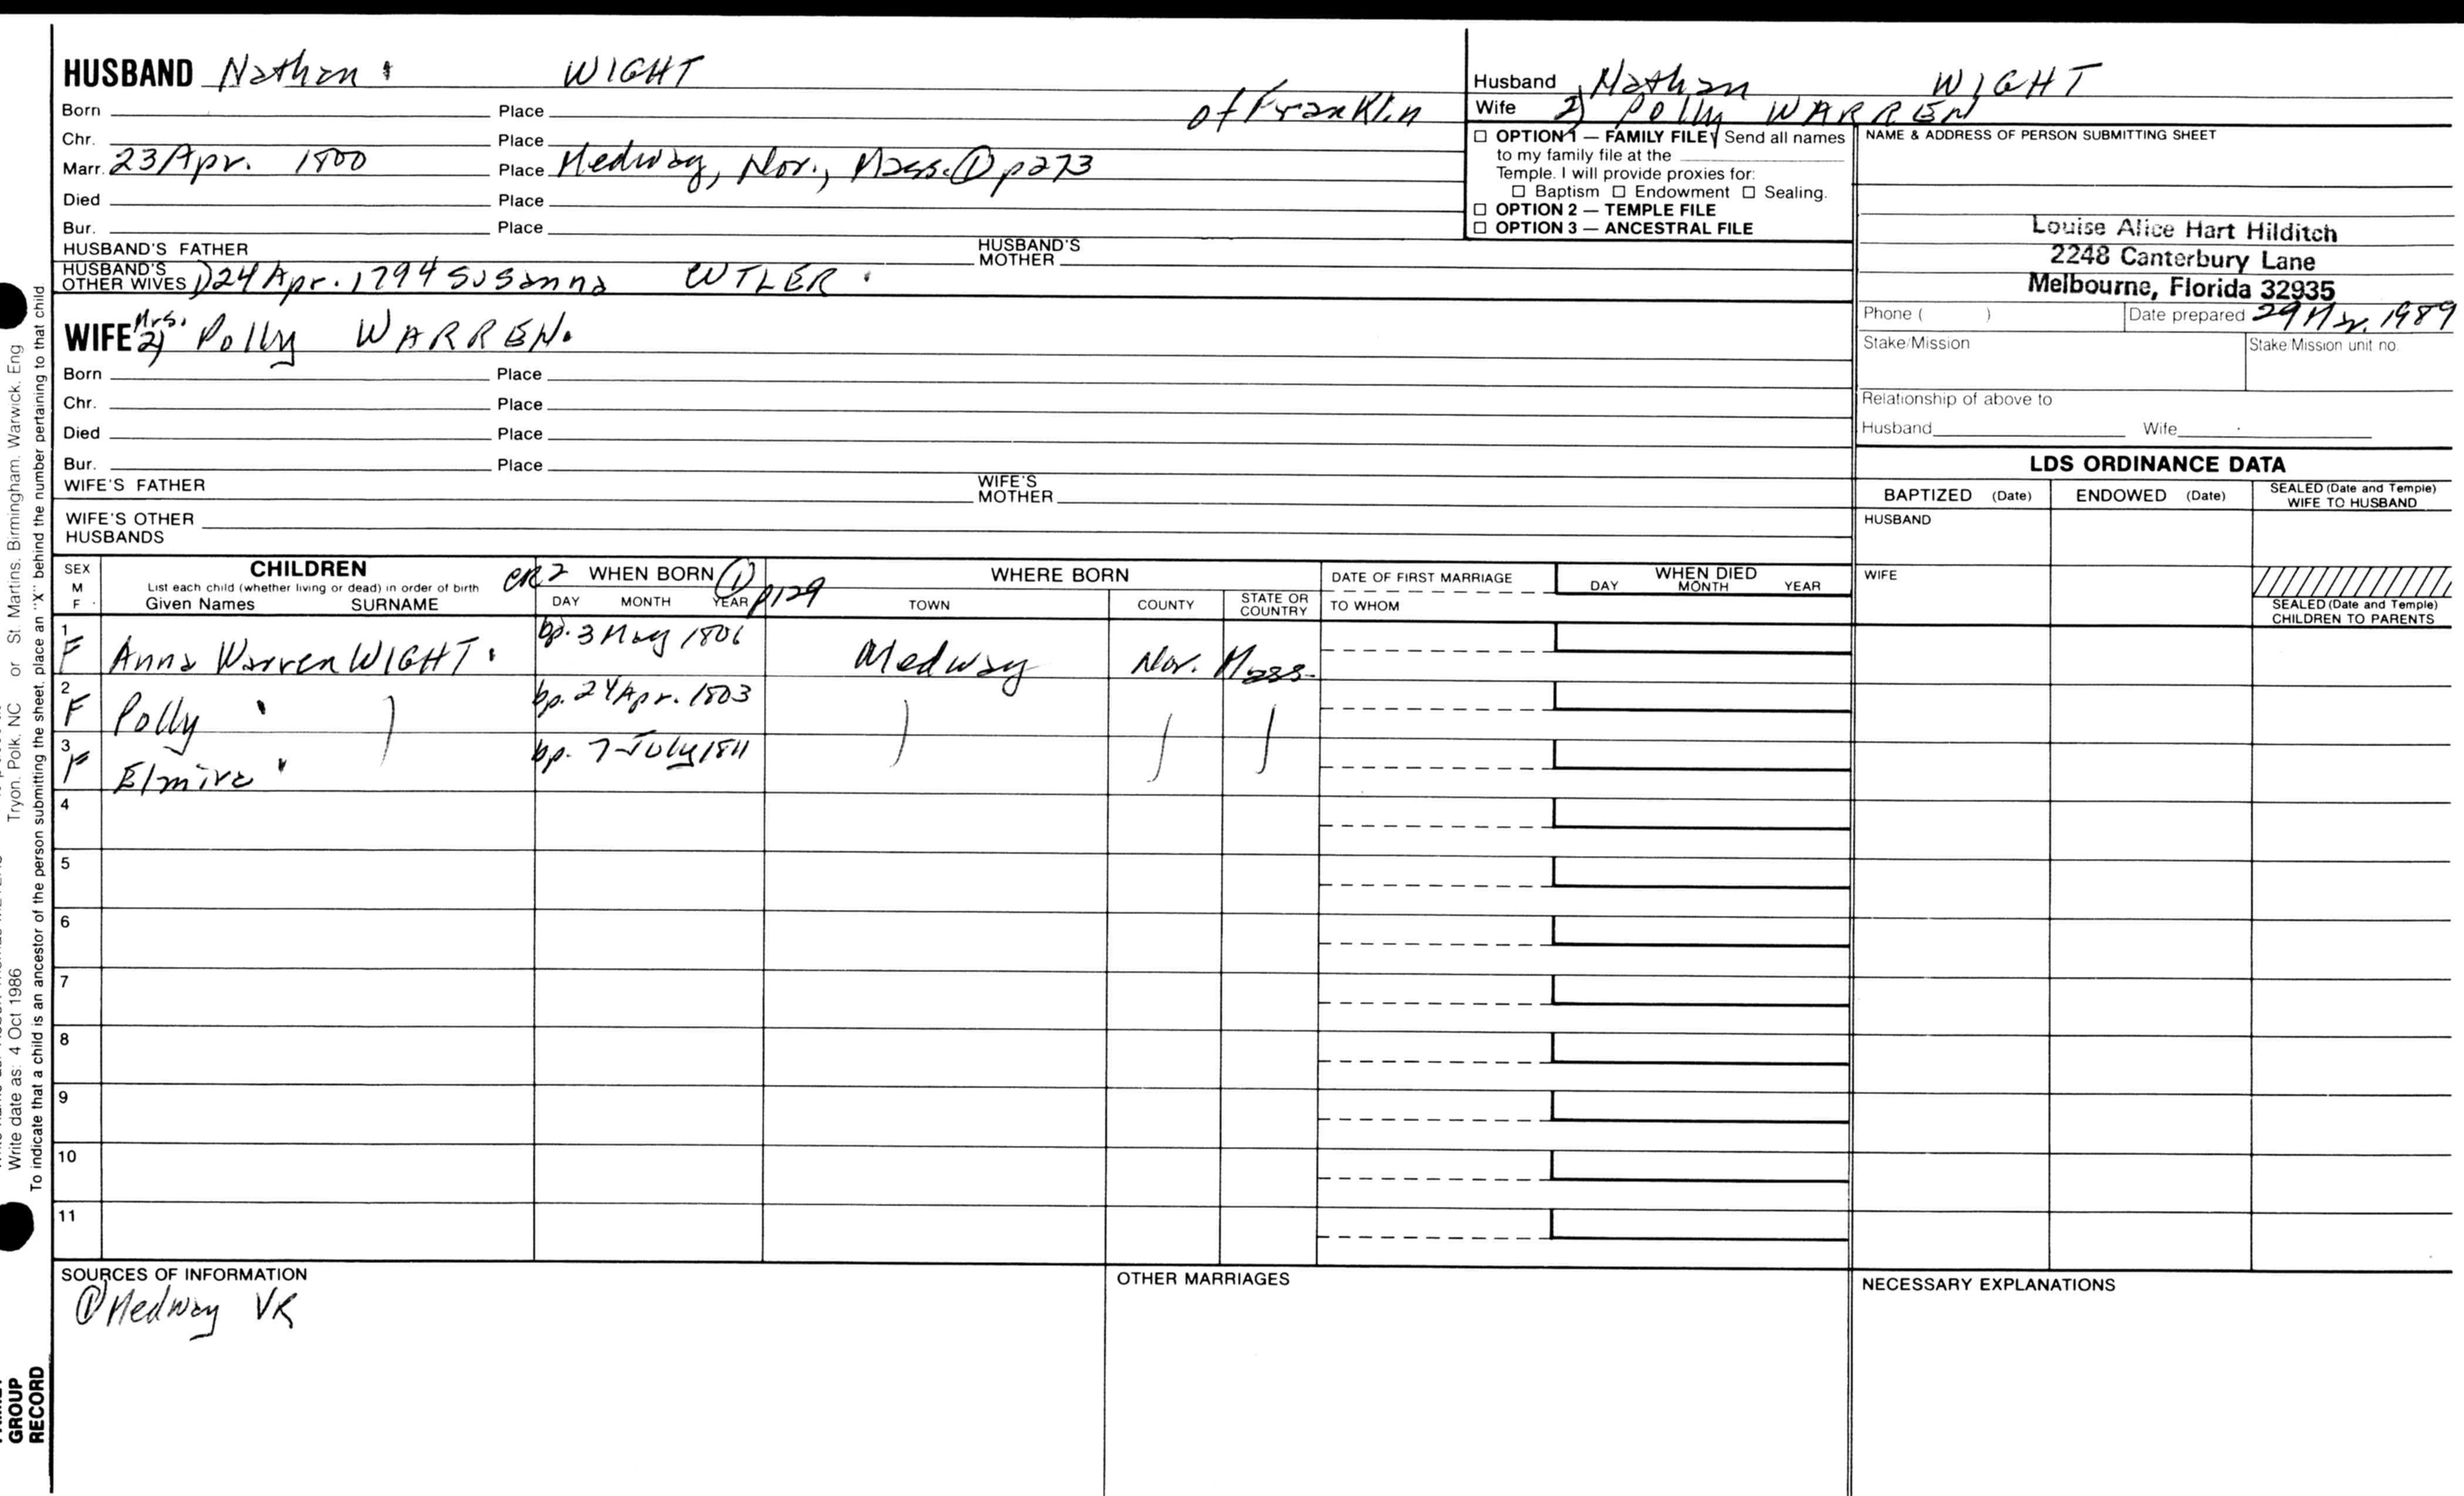 HUSBAND Nathan WIGHT
Born Place of Franklin
Chr. Place
Marr. 23 Apr. 1800 Place Medway, Nor., Mass. ① p273
Died Place
Bur. Place
HUSBAND'S FATHER HUSBAND'S MOTHER
HUSBAND'S OTHER WIVES 1) 24 Apr. 1794 Susanna CUTLER
WIFE Mrs. 2) Polly WARREN.
Born Place
Chr. Place
Died Place
Bur. Place
WIFE'S FATHER WIFE'S MOTHER
WIFE'S OTHER HUSBANDS
Husband Nathan WIGHT
Wife 2) Polly WARREN
☐ OPTION 1 — FAMILY FILE Send all names
to my family file at the
Temple. I will provide proxies for:
☐ Baptism ☐ Endowment ☐ Sealing.
☐ OPTION 2 — TEMPLE FILE
☐ OPTION 3 — ANCESTRAL FILE
NAME & ADDRESS OF PERSON SUBMITTING SHEET
Louise Alice Hart Hilditch
2248 Canterbury Lane
Melbourne, Florida 32935
Phone ( ) Date prepared 29 Mar. 1989
Stake/Mission Stake/Mission unit no.
Relationship of above to
Husband Wife
LDS ORDINANCE DATA
BAPTIZED (Date) ENDOWED (Date) SEALED (Date and Temple) WIFE TO HUSBAND
HUSBAND
WIFE
SEALED (Date and Temple) CHILDREN TO PARENTS
SEX M F
CHILDREN
List each child (whether living or dead) in order of birth
Given Names SURNAME
CR2 WHEN BORN ① p129
DAY MONTH YEAR
WHERE BORN
TOWN COUNTY STATE OR COUNTRY
DATE OF FIRST MARRIAGE
TO WHOM
WHEN DIED
DAY MONTH YEAR
1 F Anna Warren WIGHT. bp. 3 May 1806 Medway Nor. Mass.
2 F Polly " bp. 24 Apr. 1803
3 F Elmira " bp. 7 July 1811
4
5
6
7
8
9
10
11
SOURCES OF INFORMATION
① Medway VR
OTHER MARRIAGES
NECESSARY EXPLANATIONS
To indicate that a child is an ancestor of the person submitting the sheet, place an "X" behind the number pertaining to that child
Write date as: 4 Oct 1986
Tryon, Polk, NC or St. Martins, Birmingham, Warwick, Eng
GROUP
RECORD